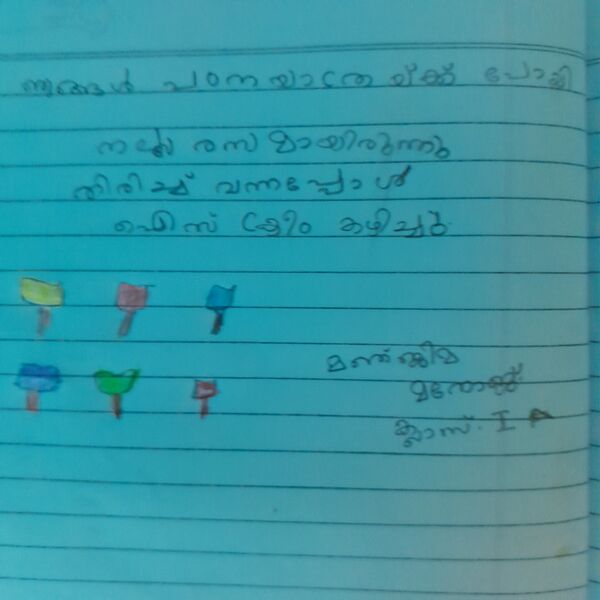 ഞങ്ങൾ പഠനയാത്രയ്ക്ക് പോയി
നല്ല രസമായിരുന്നു
തിരിച്ച് വന്നപ്പോൾ
ഐസ് ക്രീം കഴിച്ചു.
മഞ്ജിമ
മനോജ്
ക്ലാസ്. I A